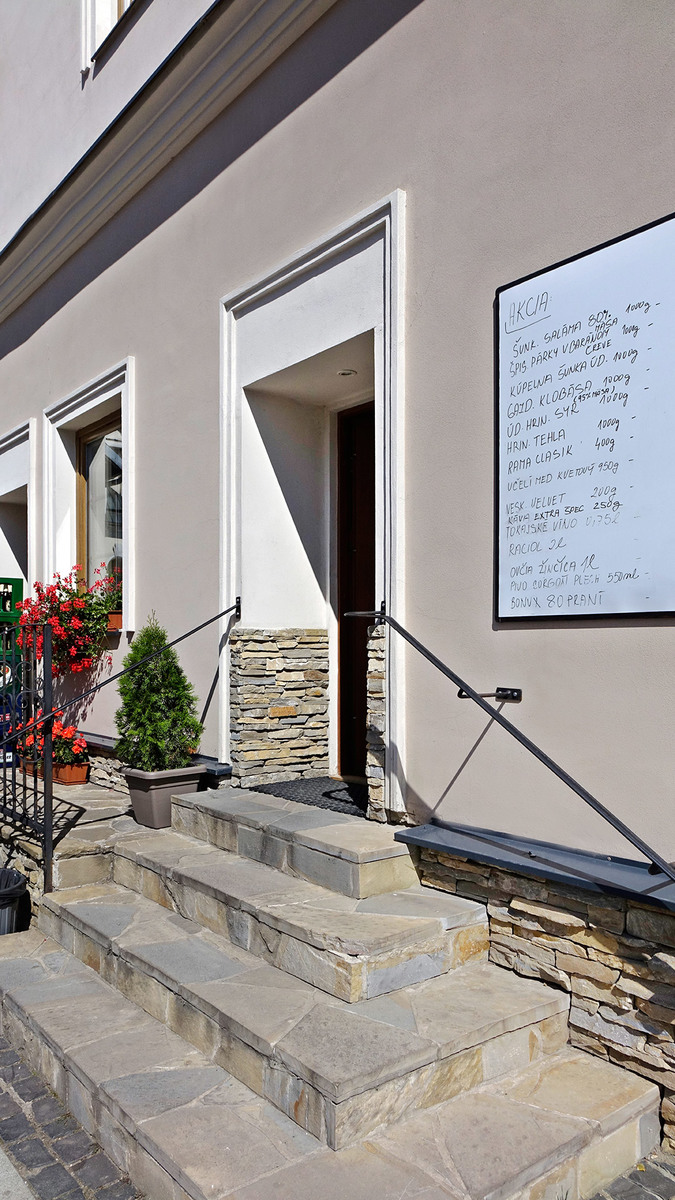 AKCIA
ŠUNK. SALÁMA 80% MÄSA 1000g -
ŠPIS. PÁRKY V BARANOM ČREVE 1000g -
KÚPEĽNÁ ŠUNKA ÚD. 1000g -
GAZD. KLOBÁSA 1000g -
ÚD. HRIN. SYR (95% MÄSA) 1000g -
HRIN. TEHLA 1000g -
RAMA CLASIK 400g -
VČELÍ MED KVETOVÝ 950g -
VESK. VELVET 200g -
KÁVA EXTRA ŠPEC 250g -
TOKAJSKÉ VÍNO 0,75l
RACIOL 2l -
OVČIA ŽINČICA 1l -
PIVO CORGOŇ PLECH 550ml -
BONUX 80 PRANÍ -